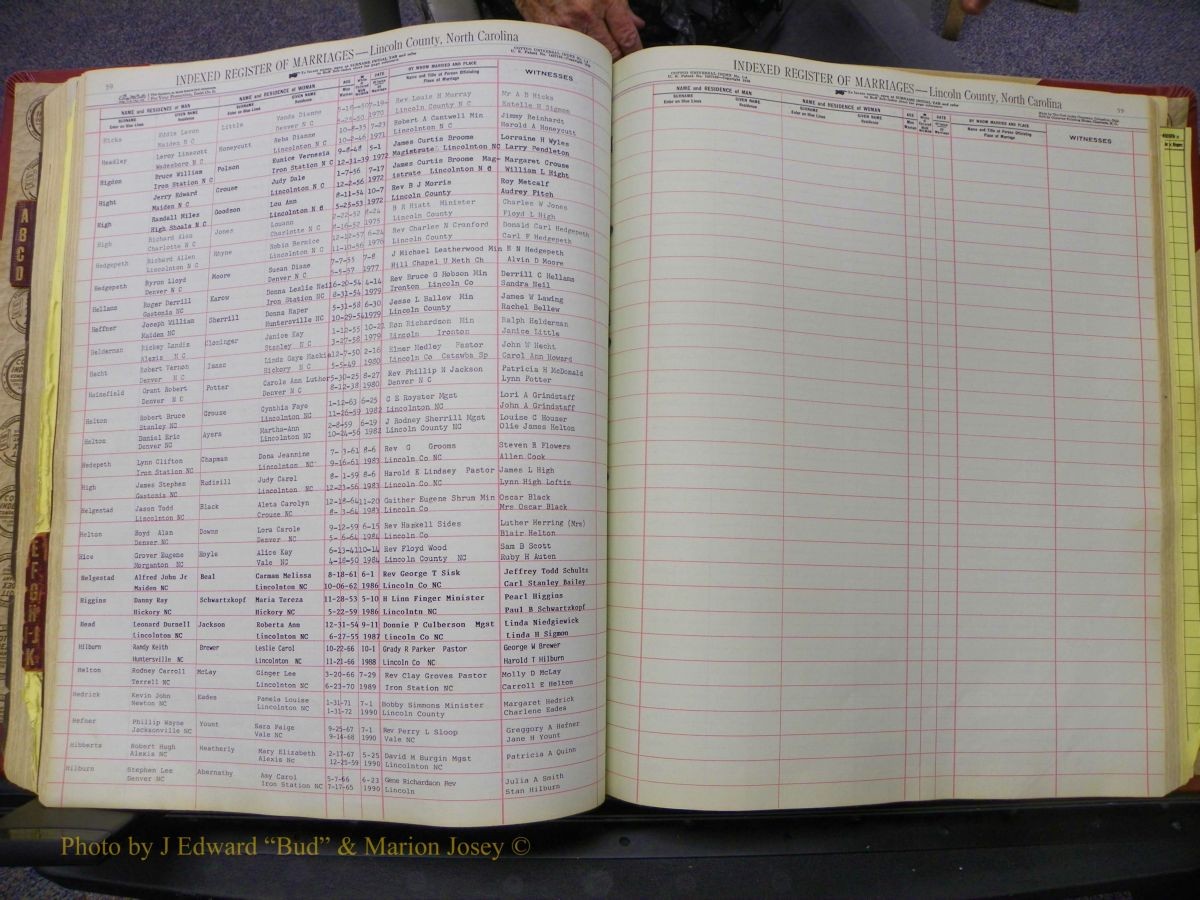 59
INDEXED REGISTER OF MARRIAGES—Lincoln County, North Carolina
NAME and RESIDENCE of MAN NAME and RESIDENCE of WOMAN BY WHOM MARRIED AND PLACE WITNESSES
SURNAME GIVEN NAME SURNAME GIVEN NAME Name and Title of Person Officiating
Enter on Blue Lines Residence Residence Place of Marriage
Hicks Eddie Lavon Little Vonda Dianne Rev Louis H Murray Mr A B Hicks
Maiden N C Denver N C 1970 Lincoln County N C Estelle H Sigmon
Headley Leroy Linscott Honeycutt Reba Dianne 10-8-35 7-23 Robert A Cantwell Min Jimmy Reinhardt
Wadesboro N C Lincolnton N C 10-2-46 1971 Lincolnton N C Harold A Honeycutt
Higdon Bruce William Polson Eunice Vernesia 9-8-48 5-1 James Curtis Broome Lorraine H Wyles
Iron Station N C Iron Station N C 12-31-39 1972 Magistrate Lincolnton NC Larry Pendleton
Hight Jerry Edward Crouse Judy Dale 1-7-56 7-17 James Curtis Broome Mag- Margaret Crouse
Maiden N C Lincolnton N C 12-2-56 1972 istrate Lincolnton N C William L Hight
High Randall Miles Goodson Lou Ann 8-11-54 10-7 Rev B J Morris Roy Metcalf
High Shoals N C Lincolnton N C 5-25-53 1972 Lincoln County Audrey Pitch
High Richard Alan Jones Louann 2-22-52 8-24 B R Hiatt Minister Charles W Jones
Charlotte N C Charlotte N C 8-16-52 1975 Lincoln County Floyd L High
Hedgepeth Richard Allen Rhyne Robin Bernice 12-12-57 6-24 Rev Charles N Cranford Donald Carl Hedgepeth
Lincolnton N C Lincolnton N C 11-10-56 1976 Lincoln County Carl F Hedgepeth
Hedgepeth Byron Lloyd Moore Susan Diane 7-7-55 7-8 J Michael Leatherwood Min E N Hedgepeth
Denver N C Denver N C 5-5-57 1977 Hill Chapel U Meth Ch Alvin D Moore
Hellams Roger Derrill Karow Donna Leslie Neil 6-20-54 4-14 Rev Bruce G Hobson Min Derrill C Hellams
Gastonia NC Iron Station NC 8-31-54 1979 Ironton Lincoln Co Sandra Neil
Heffner Joseph William Sherrill Donna Raper 5-31-58 6-30 Jesse L Ballew Min James W Lawing
Maiden NC Huntersville NC 10-29-54 1979 Lincoln County Rachel Bellew
Helderman Rickey Landis Cloninger Janice Kay 1-12-55 Ron Richardson Min Ralph Helderman
Alexis N C Stanley N C 3-27-58 1979 Lincoln Ironton Janice Little
Hecht Robert Vernon Isaac Linda Gaye Mackie 12-7-50 2-16 Elmer Medley Pastor John W Hecht
Denver N C Hickory N C 5-5-49 1980 Lincoln Co Catawba Sp Carol Ann Howard
Hainsfield Grant Robert Potter Carole Ann Luthor 5-30-25 8-27 Rev Phillip N Jackson Patricia H McDonald
Denver N C Denver N C 8-12-38 1980 Denver N C Lynn Potter
Helton Robert Bruce Crouse Cynthia Faye 1-12-63 6-25 C E Royster Mgst Lori A Grindstaff
Stanley NC Lincolnton NC 11-26-59 1982 Lincolnton NC John A Grindstaff
Helton Daniel Eric Ayers Martha-Ann 2-8-59 6-19 J Rodney Sherrill Mgst Louise C Houser
Denver NC Lincolnton NC 10-24-56 1982 Lincoln County NC Olie James Helton
Hedepeth Lynn Clifton Chapman Dona Jeannine 7- 3-61 8-6 Rev G Grooms Steven R Flowers
Iron Station NC Lincolnton NC 9-16-61 1983 Lincoln Co NC Allen Cook
High James Stephen Rudisill Judy Carol 8- 1-59 8-6 Harold E Lindsey Pastor James L High
Gastonia NC Lincolnton NC 12-23-56 1983 Lincoln Co NC Lynn High Loftin
Helgestad Jason Todd Black Aleta Carolyn 12-18-64 11-20 Gaither Eugene Shrum Min Oscar Black
Lincolnton NC Crouse NC 8- 3-64 1983 Lincoln Co Mrs Oscar Black
Helton Boyd Alan Downs Lora Carole 9-12-59 6-15 Rev Haskell Sides Luther Herring (Mrs)
Denver NC Denver NC 5- 6-64 1984 Lincoln Co NC Blair Helton
Hice Grover Eugene Hoyle Alice Kay 6-13-41 10-14 Rev Floyd Wood Sam B Scott
Morganton NC Vale NC 4-18-50 1984 Lincoln County NC Ruby H Auten
Helgestad Alfred John Jr Beal Carman Melissa 8-18-61 6-1 Rev George T Sisk Jeffrey Todd Schultz
Maiden NC Lincolnton NC 10-06-62 1986 Lincoln Co NC Carl Stanley Bailey
Higgins Danny Ray Schwartzkopf Maria Tereza 11-28-53 5-10 H Linn Finger Minister Pearl Higgins
Hickory NC Hickory NC 5-22-59 1986 Lincolntn NC Paul B Schwartzkopf
Head Leonard Durnell Jackson Roberta Ann 12-31-54 9-11 Donnie P Culberson Mgst Linda Niedgiewick
Lincolnton NC Lincolnton NC 6-27-55 1987 Lincoln Co NC Linda H Sigmon
Hilburn Randy Keith Brewer Leslie Carol 10-22-66 10-1 Grady R Parker Pastor George W Brewer
Huntersville NC Lincolnton NC 11-21-66 1988 Lincoln Co NC Harold T Hilburn
Helton Rodney Carroll McLay Ginger Lee 3-20-66 7-29 Rev Clay Groves Pastor Molly D McLay
Terrell NC Lincolnton NC 6-23-70 1989 Iron Station NC Carroll E Helton
Hedrick Kevin John Eades Pamela Louise 1-31-71 7-1 Bobby Simmons Minister Margaret Hedrick
Newton NC Lincolnton NC 1-31-72 1990 Lincoln County Charlene Eades
Hefner Phillip Wayne Yount Sara Paige 9-25-67 7-1 Rev Perry L Sloop Greggory A Hefner
Jacksonville NC Vale NC 9-14-68 1990 Vale NC Jane H Yount
Hibberts Robert Hugh Heatherly Mary Elizabeth 2-17-67 5-25 David M Burgin Mgst Patricia A Quinn
Alexis NC Alexis Nc 12-25-59 1990 Lincolnton NC
Hilburn Stephen Lee Abernathy Amy Carol 5-7-66 6-23 Gene Richardson Rev Julia A Smith
Denver NC Iron Station NC 7-17-65 1990 Lincoln Stan Hilburn
INDEXED REGISTER OF MARRIAGES—Lincoln County, North Carolina
59
NAME and RESIDENCE of MAN NAME and RESIDENCE of WOMAN BY WHOM MARRIED AND PLACE WITNESSES
A
B
C
D
E
F
G
H
I-J
K
Photo by J Edward “Bud” & Marion Josey ©